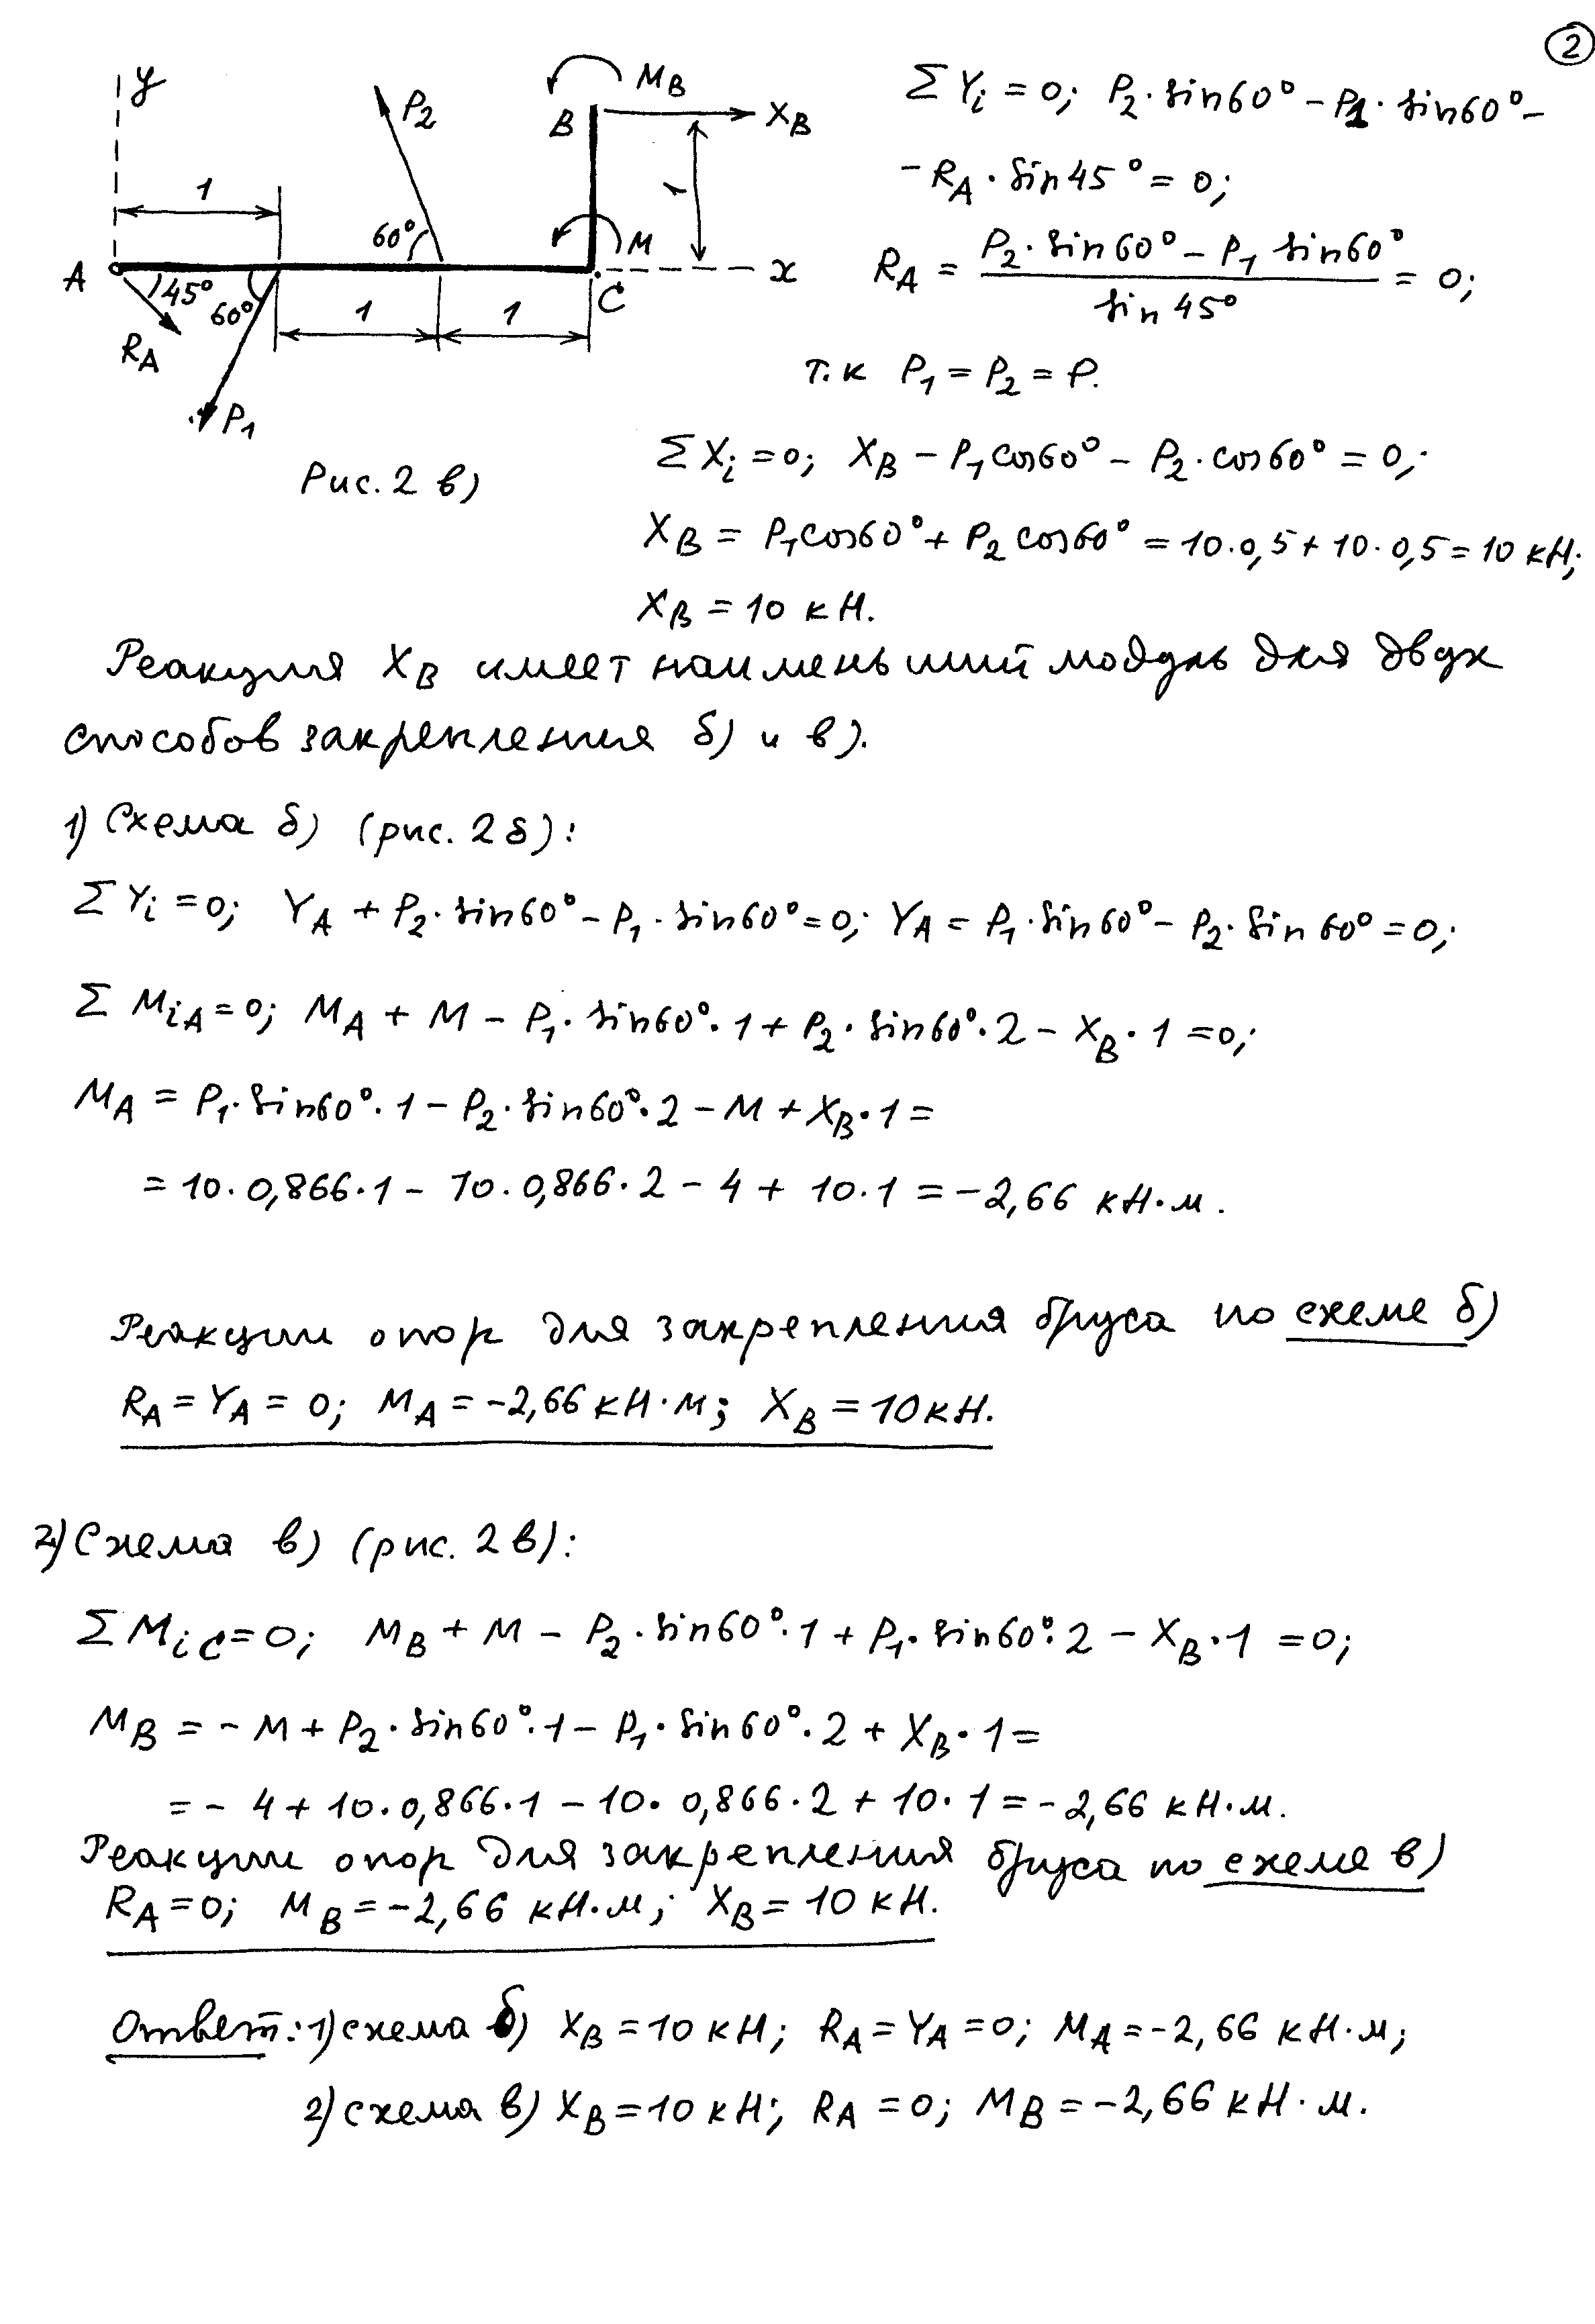 2
y
P₂
M_B
B
X_B
1
1
60°
M
A
45°
60°
C
x
1
1
R_A
P₁
Рис. 2 в)
ΣYᵢ = 0; P₂·sin60° – P₁·sin60° –
– R_A·sin45° = 0;
R_A = (P₂·sin60° – P₁ sin60°) / sin45° = 0;
т.к P₁ = P₂ = P.
ΣXᵢ = 0; X_B – P₁cos60° – P₂·cos60° = 0;
X_B = P₁cos60° + P₂cos60° = 10·0,5 + 10·0,5 = 10 кН;
X_B = 10 кН.
Реакция X_B имеет наименьший модуль для двух
способов закрепления б) и в).
1) Схема б) (рис. 2б):
ΣYᵢ = 0; Y_A + P₂·sin60° – P₁·sin60° = 0; Y_A = P₁·sin60° – P₂·sin60° = 0;
ΣM_iA = 0; M_A + M – P₁·sin60°·1 + P₂·sin60°·2 – X_B·1 = 0;
M_A = P₁·sin60°·1 – P₂·sin60°·2 – M + X_B·1 =
= 10·0,866·1 – 10·0,866·2 – 4 + 10·1 = –2,66 кН·м.
Реакции опор для закрепления бруса по схеме б)
R_A = Y_A = 0; M_A = –2,66 кН·м; X_B = 10 кН.
2) Схема в) (рис. 2в):
ΣM_iC = 0; M_B + M – P₂·sin60°·1 + P₁·sin60°·2 – X_B·1 = 0;
M_B = – M + P₂·sin60°·1 – P₁·sin60°·2 + X_B·1 =
= – 4 + 10·0,866·1 – 10·0,866·2 + 10·1 = –2,66 кН·м.
Реакции опор для закрепления бруса по схеме в)
R_A = 0; M_B = –2,66 кН·м; X_B = 10 кН.
Ответ: 1) схема б) X_B = 10 кН; R_A = Y_A = 0; M_A = –2,66 кН·м;
2) схема в) X_B = 10 кН; R_A = 0; M_B = –2,66 кН·м.